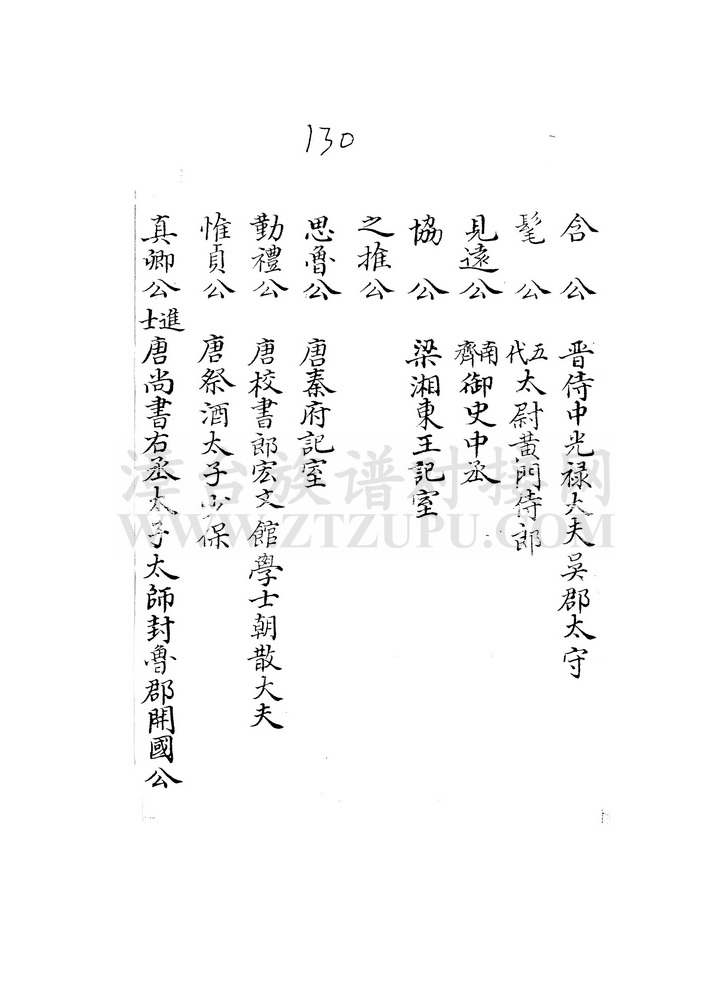 130
含公 晋侍中光禄大夫吳郡太守
髦公 五代太尉黃門侍郎
見遠公 南齊御史中丞
協公 梁湘東王記室
之推公
思魯公 唐秦府記室
勤禮公 唐校書郎宏文館學士朝散大夫
惟貞公 唐祭酒太子少保
真卿公 進士唐尚書右丞太子太師封魯郡開國公
台族谱对接网
WWW.ZTZUPU.COM